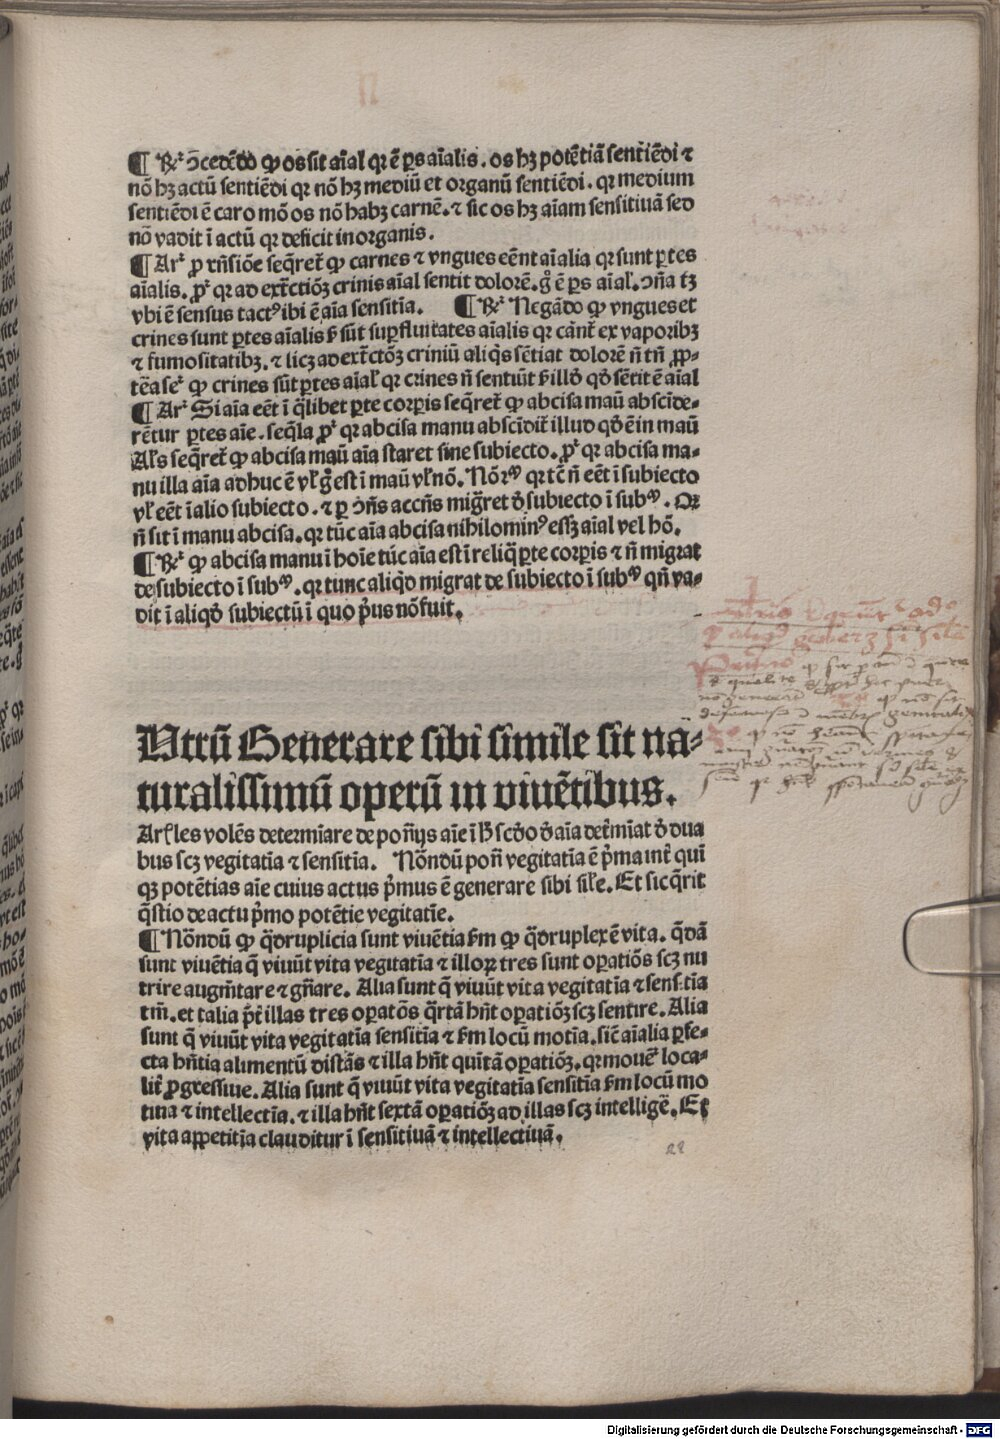 ¶ Rᵉ ꝯcedēdo ꝙ os sit aīal qꝛ ē ꝑs aīalis. os hꝫ potētiā sentiēdi ⁊
nō hꝫ actū sentiēdi qꝛ nō hꝫ mediū et organū sentiēdi. qꝛ medium
sentiēdi ē caro mō os nō habꝫ carnē. ⁊ sic os hꝫ aīam sensitiuā sed
nō vadit ī actū qꝛ deficit in organis.
¶ Arᵉ ꝓ rn̄siōe seq̄ret᷑ ꝙ carnes ⁊ vngues eēnt aīalia qꝛ sunt ꝑtes
aīalis. ꝓᵉ qꝛ ad ext᷑ctiōꝫ crinis aīal sentit dolorē. gͦ ē ꝑs aīal. ꝯn̄a tꝫ
vbi ē sensus tactꝰ ibi ē aīa sensitīa. ¶ Rᵉ Negādo ꝙ vngues et
crines sunt ꝑtes aīalis sꝫ sūt suꝑfluitates aīalis qꝛ cānt᷑ ex vaporibꝫ
⁊ fumositatibꝫ. ⁊ licꝫ ad ext᷑ctōꝫ criniū aliq̄s sētiat dolorē n̄ tn̄ ꝓp-
tēa seᵉ ꝙ crines sūt ꝑtes aīal qꝛ crines n̄ sentiūt sꝫ illđ qđ sētit ē aīal
¶ Arᵉ Si aīa eēt ī q̄libet ꝑte corꝑis seq̄ret᷑ ꝙ abcisa manū abscīde-
rētur ꝑtes aīe. seq̄la ꝓᵉ qꝛ abcisa manu abscīdit᷑ illud qđ ē in manū
Al's seq̄ret᷑ ꝙ abcisa manū aīa staret sine subiecto. ꝓᵉ qꝛ abcisa ma-
nu illa aīa adhuc ē vl' gͦ est ī manū vl' nō. Nō ꝛᵐ qꝛ tc̄ n̄ eēt ī subiecto
vl' eēt ī alio subiecto. ⁊ ꝑ ꝯn̄s accn̄s mig̃ret đ subiecto ī subᵐ. Qꝛ
n̄ sit ī manu abcisa. qꝛ tūc aīa abcisa nihilominꝰ essꝫ aīal vel hō.
¶ Rᵉ ꝙ abcisa manu ī hoīe tūc aīa est ī reliq̄ ꝑte corꝑis ⁊ n̄ migrat
de subiecto ī subᵐ. qꝛ tunc aliqđ migrat de subiecto ī subᵐ qn̄ va-
dit ī aliqđ subiectū ī quo p̄us nō fuit.
Utrū Generare sibi simile sit na-
turalissimū operū in viuētibus.
Arl'es volēs determīare de pon̄ijs aīe ī ħ scđo đ aīa det᷑mīat đ dua
bus scꝫ vegitatīa ⁊ sensitīa. Nōndū pon̄ vegitatīa ē p̄ma int᷑ quī
qꝫ potētias aīe cuius actus p̄mus ē generare sibi sil'e. Et sic q̄rit
q̄stio de actu p̄mo potētie vegitatīe.
¶ Nōndū ꝙ q̄druplicia sunt viuētia sꝫm ꝙ q̄druplex ē vita. q̄dā
sunt viuētia q̄ viuūt vita vegitatīa ⁊ illoꝝ tres sunt oꝑatiōs scꝫ nu
trire augm̄tare ⁊ gn̄are. Alia sunt q̄ viuūt vita vegitatīa ⁊ sensitīa
tm̄. et talia p̄t illas tres oꝑatōs q̄rtā hn̄t oꝑatiōꝫ scꝫ sentire. Alia
sunt q̄ viuūt vita vegitatīa sensitīa ⁊ sꝫm locū motīa. sic̄ aīalia ꝑfe-
cta hn̄tia alimentū distās ⁊ illa hn̄t quītā oꝑatiōꝫ. qꝛ mouēt᷑ loca-
lit᷑ ꝓgressiue. Alia sunt q̄ viuūt vita vegitatīa sensitīa sꝫm locū mo
tiua ⁊ intellectīa. ⁊ illa hn̄t sextā oꝑatiōꝫ ad illas scꝫ intelligē. Et
vita apꝑetitīa clauditur ī sensitiuā ⁊ intellectiuā.
28
Digitalisierung gefördert durch die Deutsche Forschungsgemeinschaft - DFG